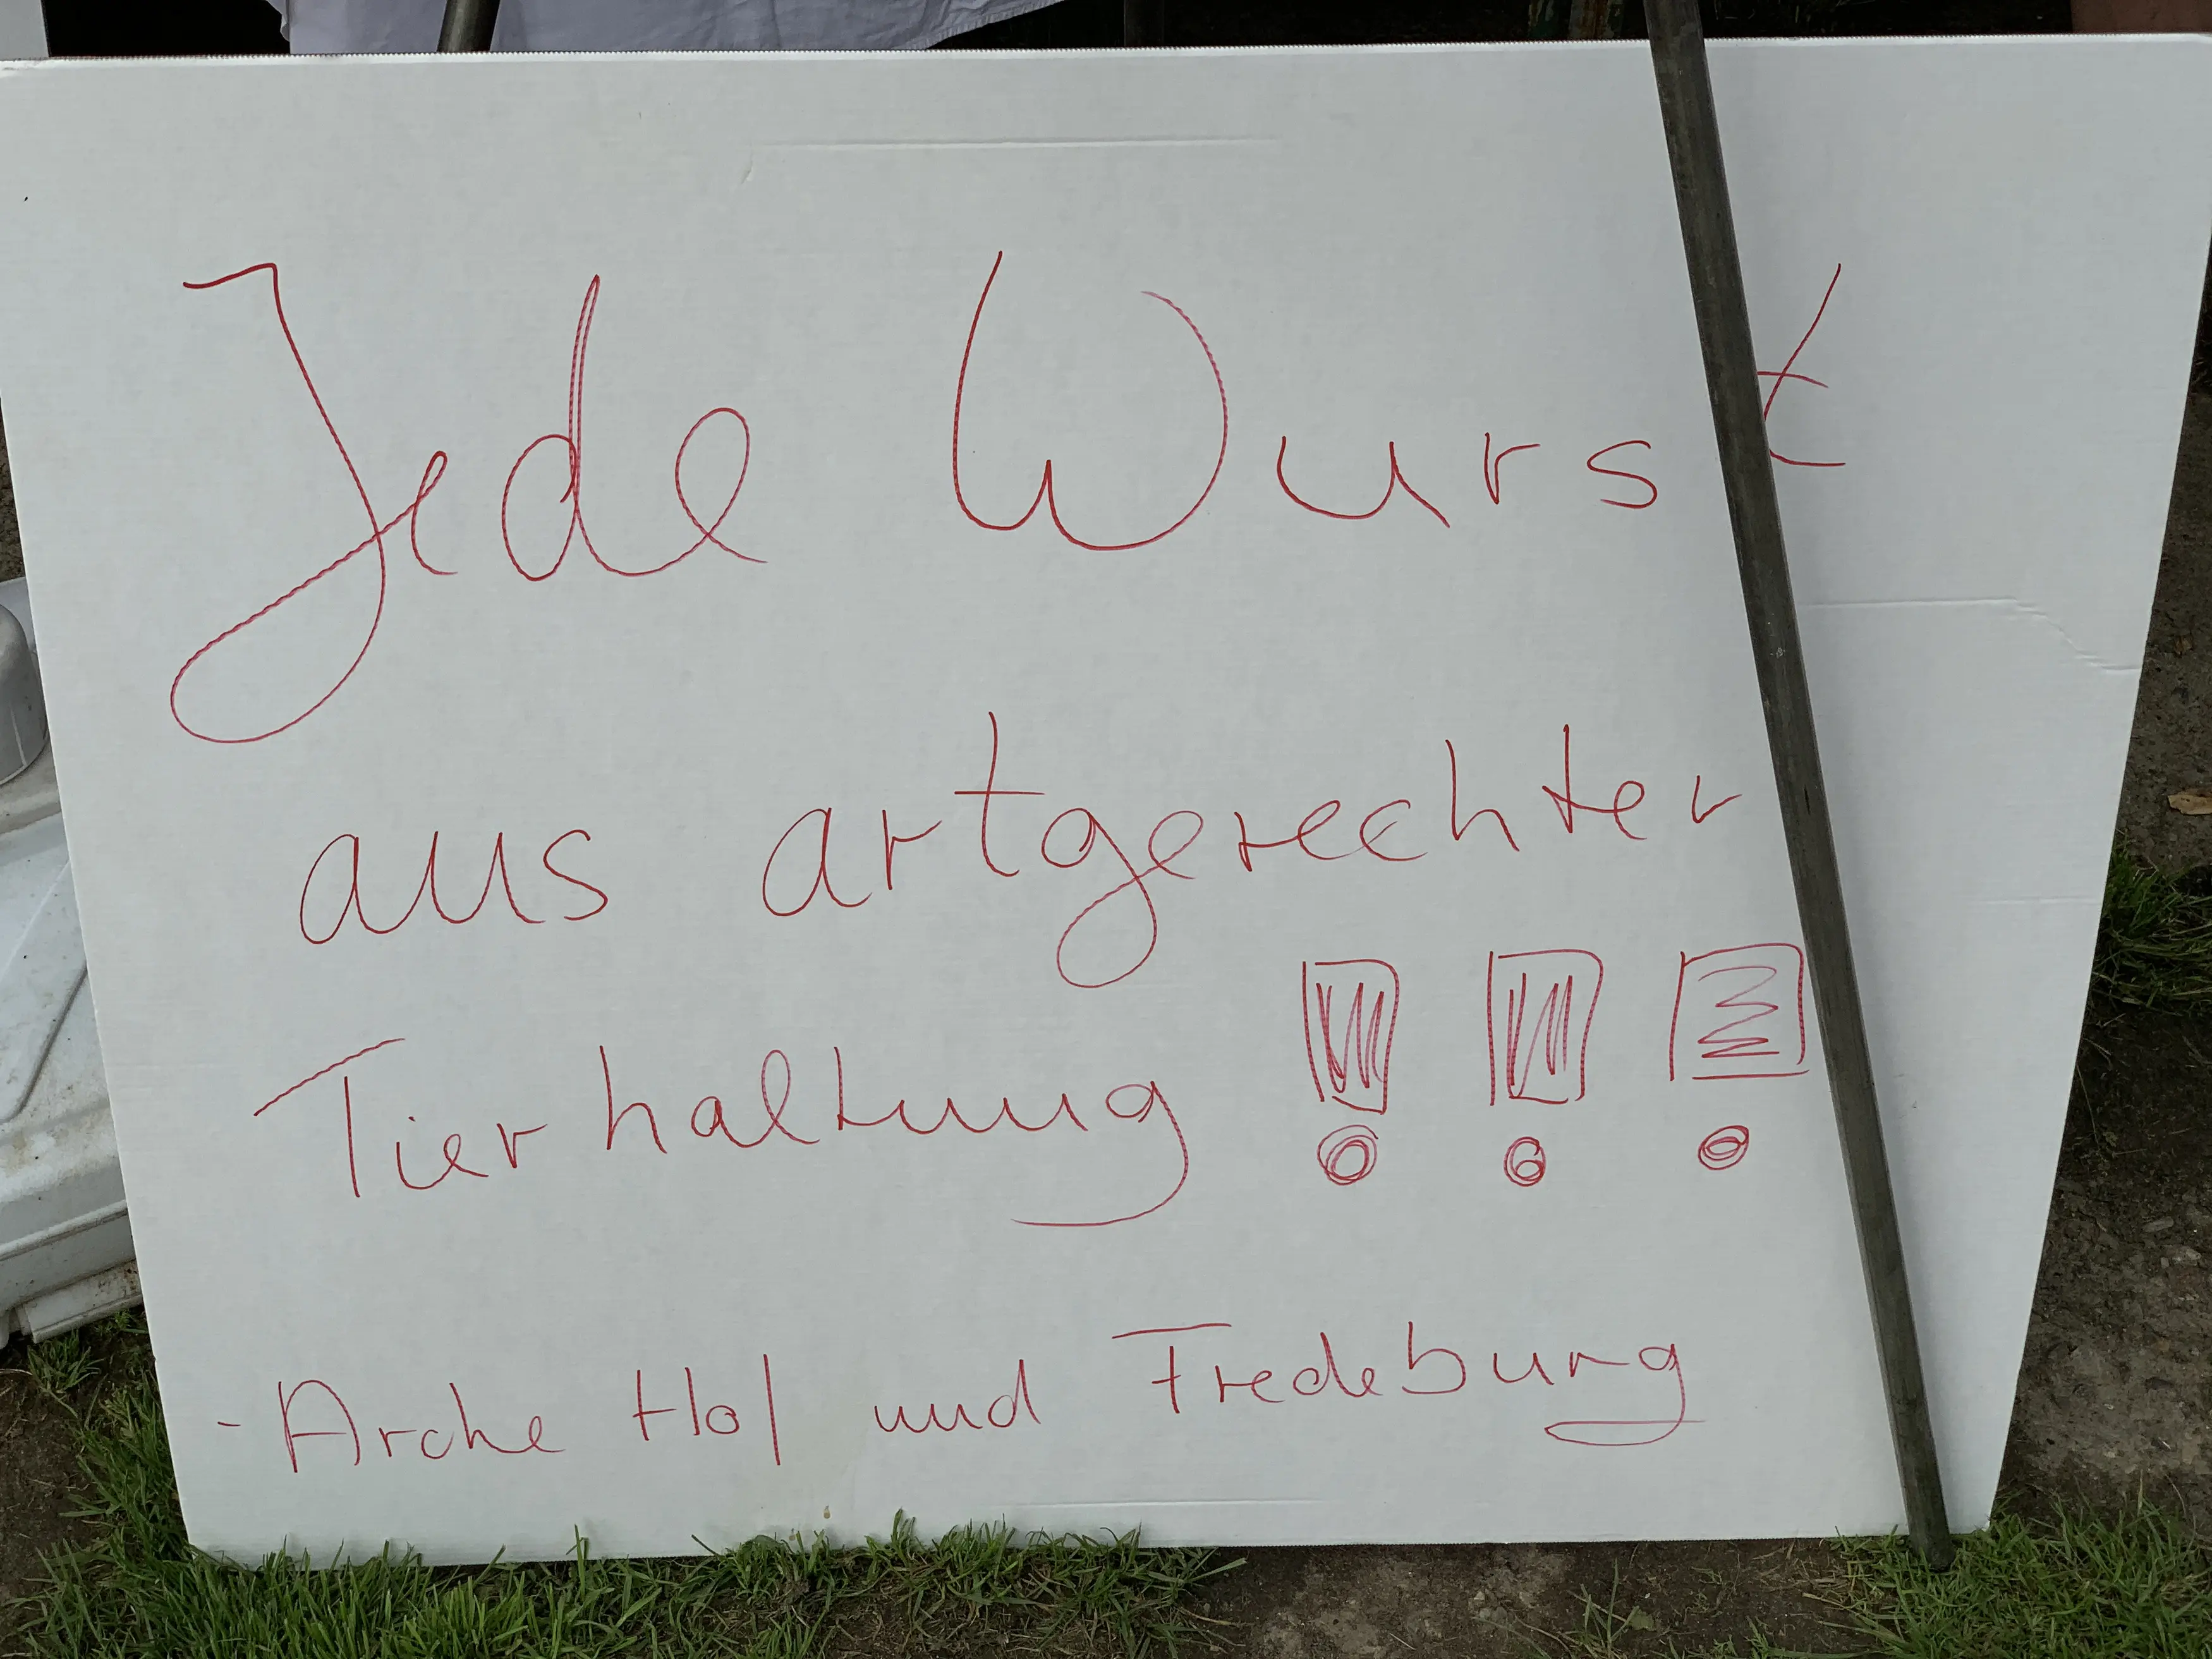 Jede Wurst
aus artgerechter
Tierhaltung !!!
- Arche Hof und Fredeburg